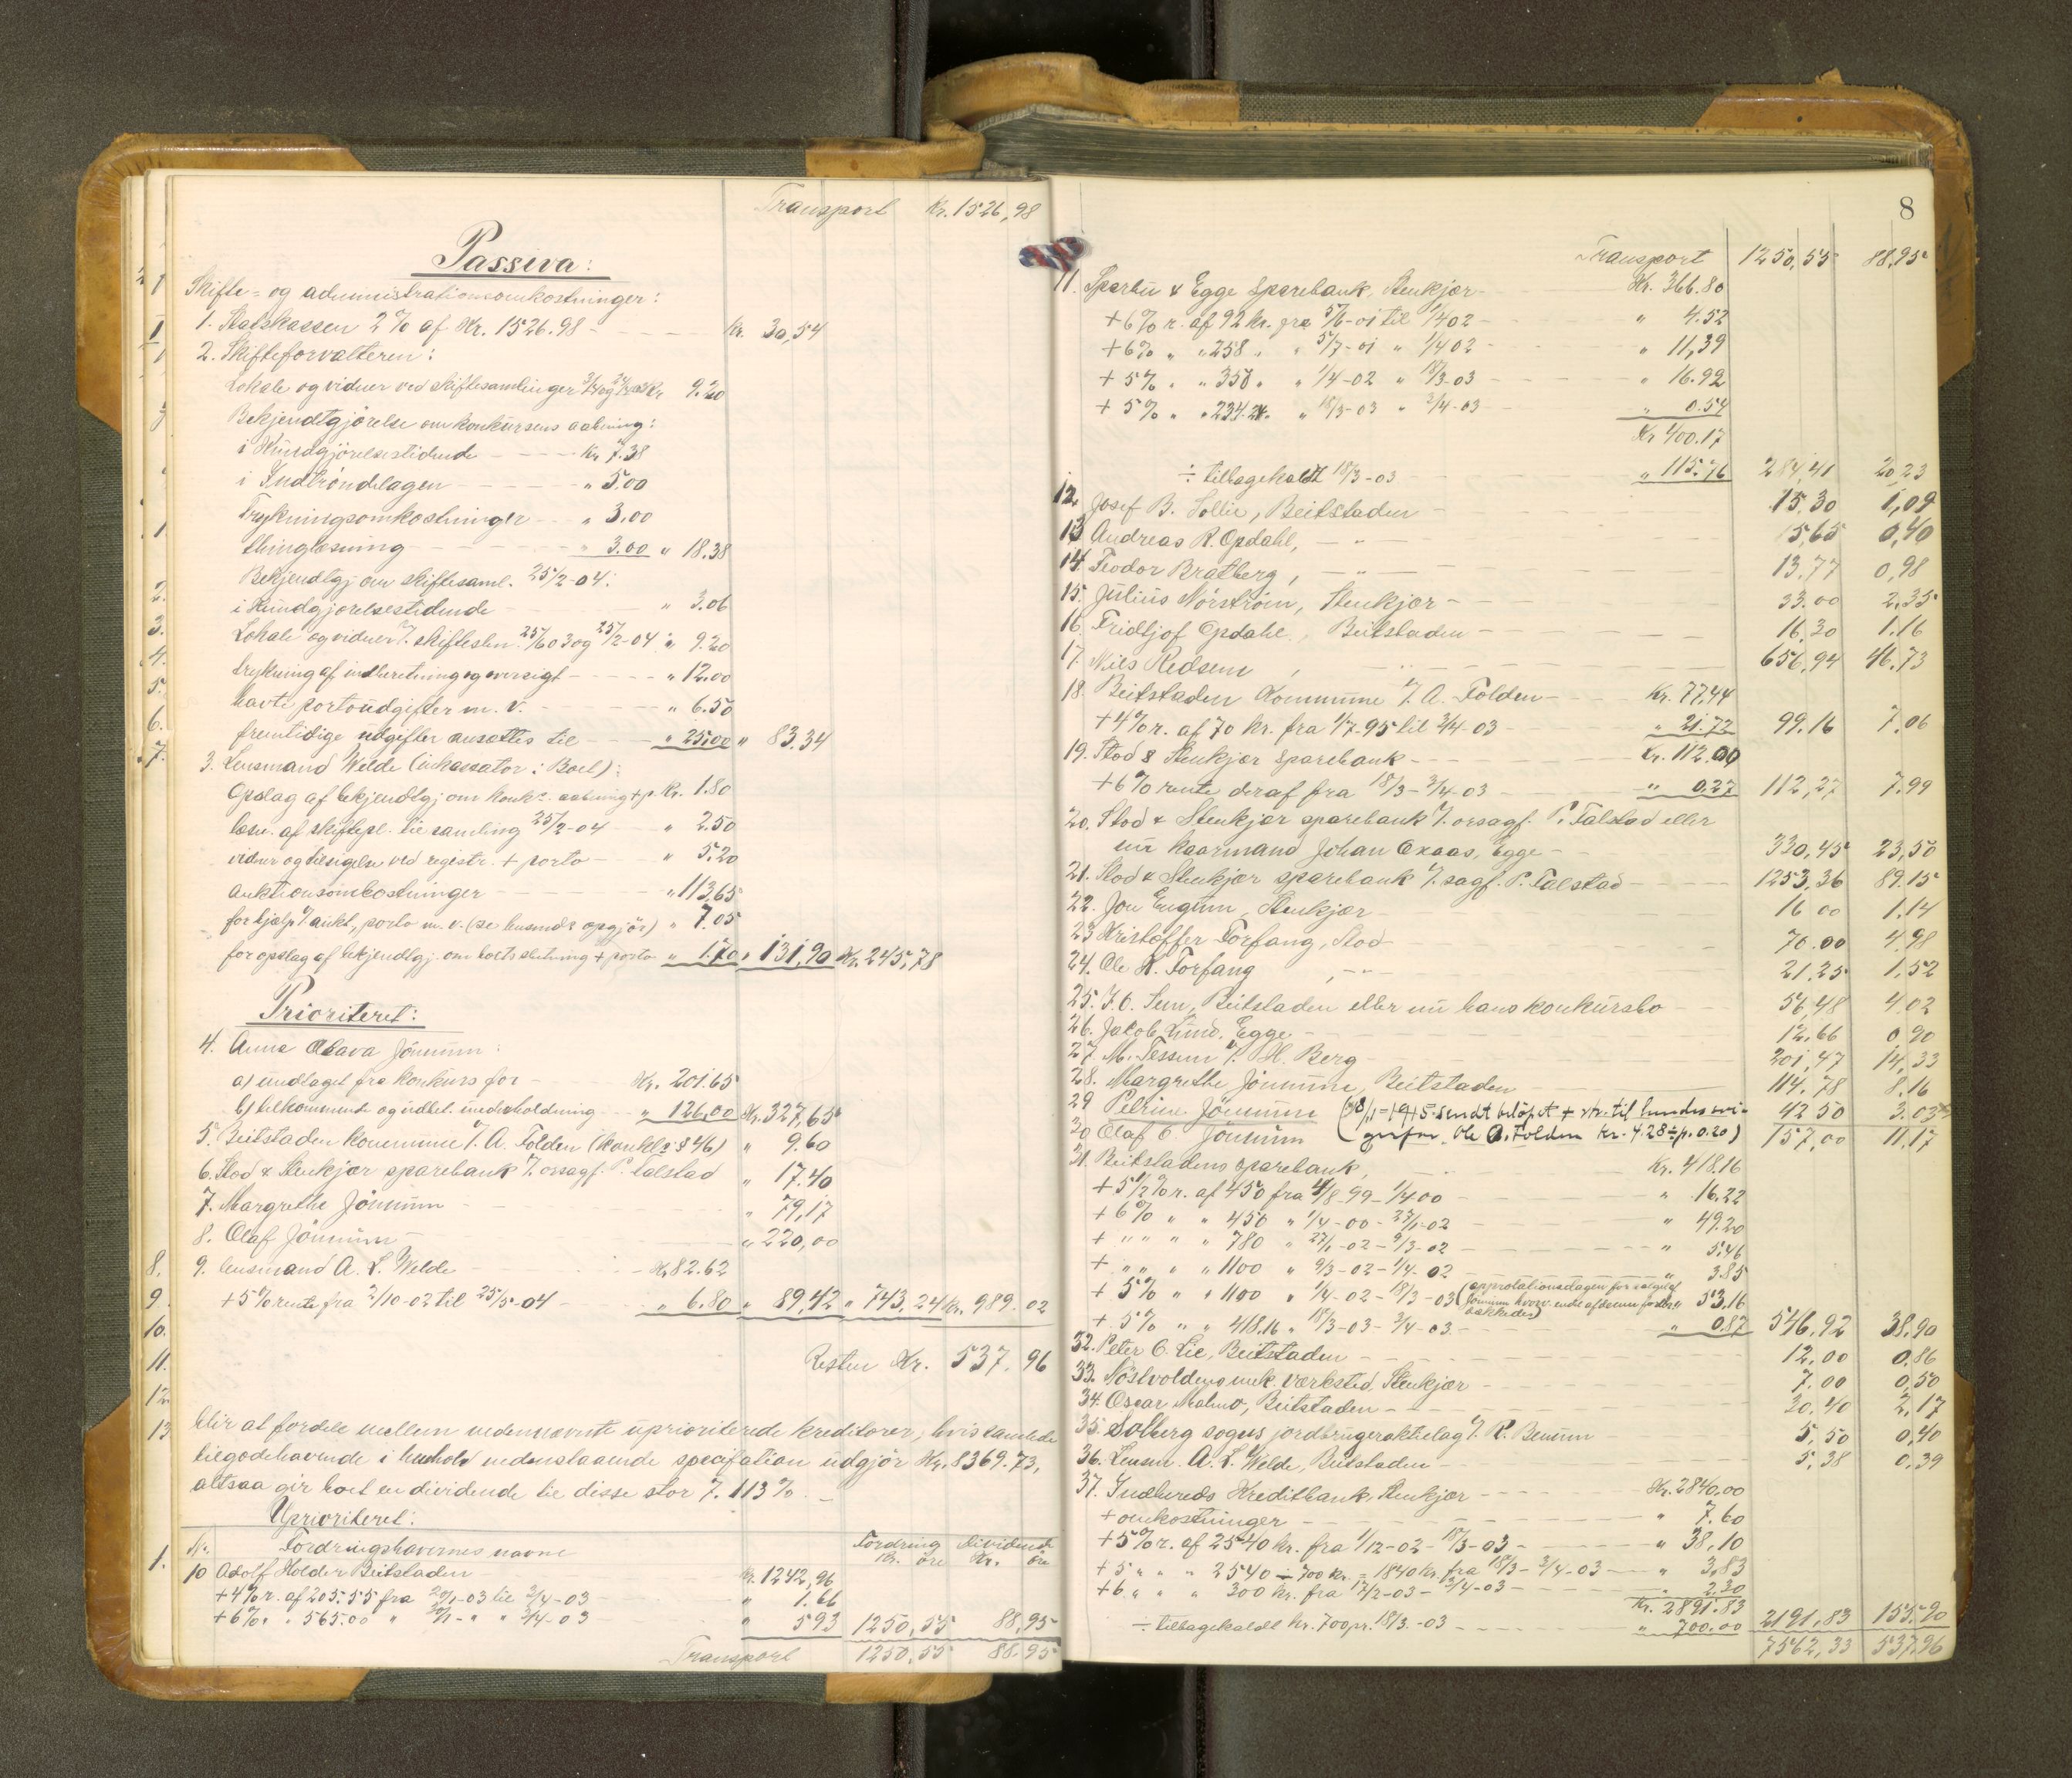 Transport Kr. 1526,98
Passiva:
Skifte- og administrationsomkostninger:
1. Statskassen 2% af Kr. 1526.98 - Kr. 30,54
2. Skifteforvalteren:
Lokale og vidner ved skiftesamlinger 9.20
Bekjendtgjørelse om konkursens aabning:
i Kundgjörelsestidende - Kr. 7.38
i Indtröndelagen " 5.00
Trykningsomkostninger " 3,00
thinglæsning " 3.00 " 18.38
Bekjendtgj. om skiftesaml. 25/2-04:
i Kundgjørelsestidende " 3.06
Lokale og vidner 25/2-04 " 9.20
trykning af indberetning og oversigt " 12.00
havte portoudgifter m. v. " 6.50
fremtidige udgifter ansættes til " 25.00 " 83.34
3. Lensmand Welde (inkassator i Boet):
Opslag af bekjendtgj om konks. aabning + p. Kr. 1.80
til samling 25/2-04 " 2.50
vidner og tilsigelse ved registr. + porto " 5.20
auktionsomkostninger " 113,65
for hjælp v/ aukt., porto m. v. (se lensmds opgjör) " 7.05
for opslag af bekjendtgj. om boets slutning + porto " 1.70 " 131,90 Kr. 245,78
Prioriteret:
4. Anna Olava Jönnum:
a) undtaget fra konkurs for Kr. 201.65
b) tilkommende og udbet. underholdning " 126,00 Kr. 327,65
5. Beitstaden kommune v/ A. Folden (konkl. § 46) " 9.60
6. Stod & Stenkjær sparebank v/ orsagf. P. Falstad " 17.40
7. Margrethe Jönnum " 79,17
8. Olaf Jönnum " 220,00
9. Lensmand A. L. Welde Kr. 82.62
+ 5% rente fra 2/10-02 til 25/5-04 " 6.80 " 89,42 " 743,24 Kr. 989.02
Resten Kr. 537.96
blir at fordele mellem nedennævnte uprioriterede kreditorer, hvis samlede
tilgodehavende i henhold nedenstaaende specifation udgjör Kr. 8369.73,
altsaa gir boet en dividende til disse stor 7.113%
Uprioriteret:
No. Fordringshavernes navne Fordring Kr. öre Dividende Kr. öre
10 Adolf Holder Beitstaden Kr. 1242,96
+ 4% r. af 205.55 fra 20/1-03 til 3/4-03 " 1.66
+ 6% " " 565.00 " 20/1 - " " 3/4-03 " 5.93 1250,55 88,95
Transport 1250,55 88.95
8
Transport 1250,55 88,95
11. Sparbu & Egge Sparebank, Stenkjær Kr. 366.80
+ 6% r. af 92 kr. fra 5/6-01 til 1/4 02 " 4.52
+ 6% " " 258 " " 5/7-01 " 1/4 02 " 11,39
+ 5% " " 350 " " 1/4-02 " 18/3-03 " 16.92
+ 5% " " 234.24 " " 18/3-03 " 3/4-03 " 0.54
Kr 400.17
÷ tilbagekaldt 18/3-03 " 115.76 284,41 20,23
12. Josef B. Sollie, Beitstaden 15.30 1,09
13 Andreas R. Opdahl, - " - 15,65 0,40
14. Feodor Bratberg, - " - 13.77 0,98
15. Julius Nórström, Stenkjær 33.00 2,35
16. Fridtjof Opdahl, Beitstaden 16,30 1.16
17. Nils Redsem, - " - 656,94 46,73
18. Beitstaden Kommune v/ A. Folden Kr. 77,44
+ 4% r. af 70 kr. fra 1/7-95 til 3/4-03 " 21.72 99.16 7.06
19. Stod & Stenkjær sparebank Kr. 112.00
+ 6% rente deraf fra 18/3-3/4-03 " 0.27 112,27 7.99
20. Stod & Stenkjær sparebank v/ orsagf. P. Falstad eller
nu kaarmand Johan Oxaas, Egge 330,45 23,50
21. Stod & Stenkjær sparebank v/ sagf. P. Falstad 1253,36 89.15
22. Jon Engum, Stenkjær 16 00 1.14
23 Kristoffer Forfang, Stod 70.00 4.98
24. Ole K. Forfang, - " - 21,25 1,52
25. J. O. Sem, Beitstaden eller nu hans konkursbo 56,48 4.02
26. Jakob Lund, Egge 12,66 0,90
27. M. Tessem v/ H. Berg 201,47 14,33
28. Margrethe Jönnum, Beitstaden 114.78 8.16
29 Petrine Jönnum (28/1-1915 sendt belöpet + rtr. til 42 50 3.03
30 Olaf O. Jönnum Ole A. Folden kr. 4.28 ÷ p. 0.20) 157,00 11,17
31. Beitstadens sparebank, Kr. 418.16
+ 5 1/2% r. af 450 fra 4/8-99 - 1/4 00 " 16.22
+ 6% " " 450 " 1/4-00 - 27/1-02 " 49.20
+ " " " " 780 " 27/1-02 - 9/3-02 " 5.46
+ " " " " 1100 " 9/3-02 - 1/4-02 " 3.85
+ 5% " " 1100 " 1/4-02 - 18/3-03 (approbationsdagen for salget af " 53,16
+ 5% " " 418.16 " 18/3-03 - 3/4-03 " 0.87 546,92 38,90
32. Peter O. Lie, Beitstaden 12,00 0,86
33. Nöstvoldens mek. værksted, Stenkjær 7.00 0,50
34. Oscar Malmo, Beitstaden 30,40 2,17
35. Solberg sogns jordbrugeraktielag v/ R. Benum 5,50 0,40
36. Lensm. A. L. Welde, Beitstaden 5,38 0,39
37. Indhereds Kreditbank, Stenkjær Kr. 2840,00
+ omkostninger " 7.60
+ 5% r. af 2540 kr. fra 1/12-02 - 18/3-03 " 38,10
+ 5 " " " 2540 ÷ 700 kr. = 1840 kr. fra 18/3 - 3/4-03 " 3,83
+ 6 " " " 300 kr. fra 17/2-03 - 3/4-03 " 2,30
Kr. 2891.83
÷ tilbagekaldt kr. 700 pr. 18/3-03 " 700,00 2191,83 155,90
7562,33 537,96